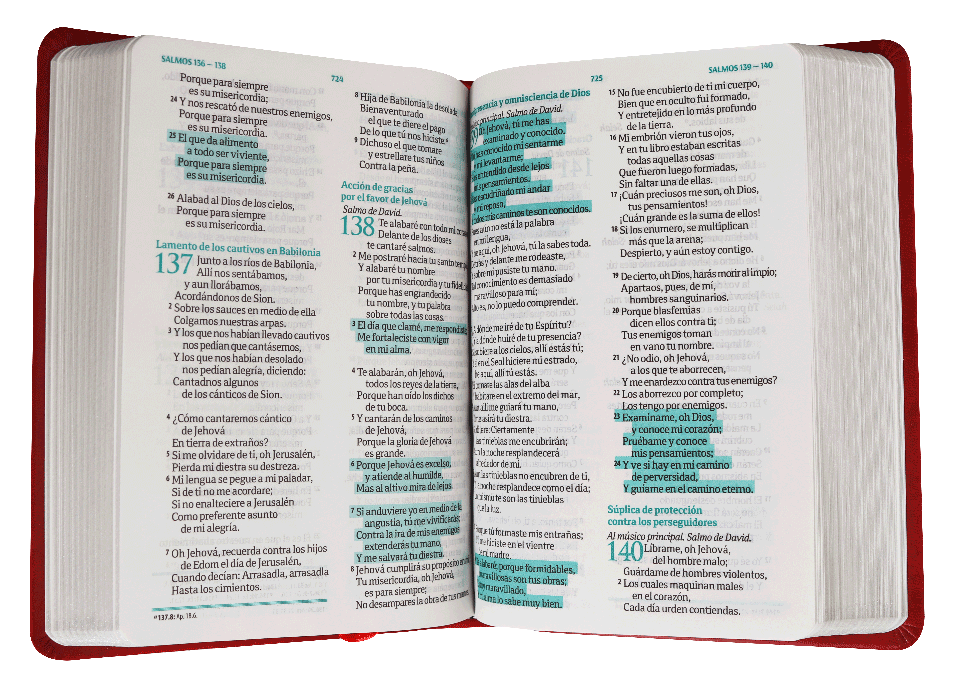 SALMOS 136 – 138
724
Porque para siempre
es su misericordia;
24 Y nos rescató de nuestros enemigos,
Porque para siempre
es su misericordia.
25 El que da alimento
a todo ser viviente,
Porque para siempre
es su misericordia.
26 Alabad al Dios de los cielos,
Porque para siempre
es su misericordia.
Lamento de los cautivos en Babilonia
137 Junto a los ríos de Babilonia,
Allí nos sentábamos,
y aun llorábamos,
Acordándonos de Sion.
2 Sobre los sauces en medio de ella
Colgamos nuestras arpas.
3 Y los que nos habían llevado cautivos
nos pedían que cantásemos,
Y los que nos habían desolado
nos pedían alegría, diciendo:
Cantadnos algunos
de los cánticos de Sion.
4 ¿Cómo cantaremos cántico
de Jehová
En tierra de extraños?
5 Si me olvidare de ti, oh Jerusalén,
Pierda mi diestra su destreza.
6 Mi lengua se pegue a mi paladar,
Si de ti no me acordare;
Si no enalteciere a Jerusalén
Como preferente asunto
de mi alegría.
7 Oh Jehová, recuerda contra los hijos
de Edom el día de Jerusalén,
Cuando decían: Arrasadla, arrasadla
Hasta los cimientos.
a 137.8: Ap. 18.6.
8 Hija de Babilonia la
Bienaventurado
el que te diere el pago
De lo que tú nos hiciste.a
9 Dichoso el que tomare
y estrellare tus niños
Contra la peña.
Acción de gracias
por el favor de Jehová
Salmo de David.
138 Te alabaré con todo mi
Delante de los dioses
te cantaré salmos.
2 Me postraré hacia tu santo
Y alabaré tu nombre
por tu misericordia y tu
Porque has engrandecido
tu nombre, y tu palabra
sobre todas las cosas.
3 El día que clamé, me
Me fortaleciste con vigor
en mi alma.
4 Te alabarán, oh Jehová,
todos los reyes de la tierra,
Porque han oído los dichos
de tu boca.
5 Y cantarán de los caminos
de Jehová,
Porque la gloria de Jehová
es grande.
6 Porque Jehová es excelso,
y atiende al humilde,
Mas al altivo mira de lejos.
7 Si anduviere yo en medio de la
angustia, tú me vivificarás;
Contra la ira de mis enemigos
extenderás tu mano,
Y me salvará tu diestra.
8 Jehová cumplirá su propósito
Tu misericordia, oh Jehová,
es para siempre;
No desampares la obra de tus
725
SALMOS 139 – 140
y omnisciencia de Dios
principal. Salmo de David.
Jehová, tú me has
examinado y conocido.
has conocido mi sentarme
mi levantarme;
entendido desde lejos
pensamientos.
escudriñado mi andar
mi reposo,
mis caminos te son conocidos.
aun no está la palabra
en mi lengua,
aquí, oh Jehová, tú la sabes toda.
y delante me rodeaste,
sobre mí pusiste tu mano.
conocimiento es demasiado
maravilloso para mí;
es, no lo puedo comprender.
dónde me iré de tu Espíritu?
a dónde huiré de tu presencia?
a los cielos, allí estás tú;
en el Seol hiciere mi estrado,
aquí, allí tú estás.
las alas del alba
habitare en el extremo del mar,
allí me guiará tu mano,
me asirá tu diestra.
Ciertamente
las tinieblas me encubrirán;
la noche resplandecerá
alrededor de mí.
las tinieblas no encubren de ti,
noche resplandece como el día;
son las tinieblas
que la luz.
tú formaste mis entrañas;
me hiciste en el vientre
de mi madre.
porque formidables,
maravillosas son tus obras;
maravillado,
mi alma lo sabe muy bien.
15 No fue encubierto de ti mi cuerpo,
Bien que en oculto fui formado,
Y entretejido en lo más profundo
de la tierra.
16 Mi embrión vieron tus ojos,
Y en tu libro estaban escritas
todas aquellas cosas
Que fueron luego formadas,
Sin faltar una de ellas.
17 ¡Cuán preciosos me son, oh Dios,
tus pensamientos!
¡Cuán grande es la suma de ellos!
18 Si los enumero, se multiplican
más que la arena;
Despierto, y aún estoy contigo.
19 De cierto, oh Dios, harás morir al impío;
Apartaos, pues, de mí,
hombres sanguinarios.
20 Porque blasfemias
dicen ellos contra ti;
Tus enemigos toman
en vano tu nombre.
21 ¿No odio, oh Jehová,
a los que te aborrecen,
Y me enardezco contra tus enemigos?
22 Los aborrezco por completo;
Los tengo por enemigos.
23 Examíname, oh Dios,
y conoce mi corazón;
Pruébame y conoce
mis pensamientos;
24 Y ve si hay en mí camino
de perversidad,
Y guíame en el camino eterno.
Súplica de protección
contra los perseguidores
Al músico principal. Salmo de David.
140 Líbrame, oh Jehová,
del hombre malo;
Guárdame de hombres violentos,
2 Los cuales maquinan males
en el corazón,
Cada día urden contiendas.